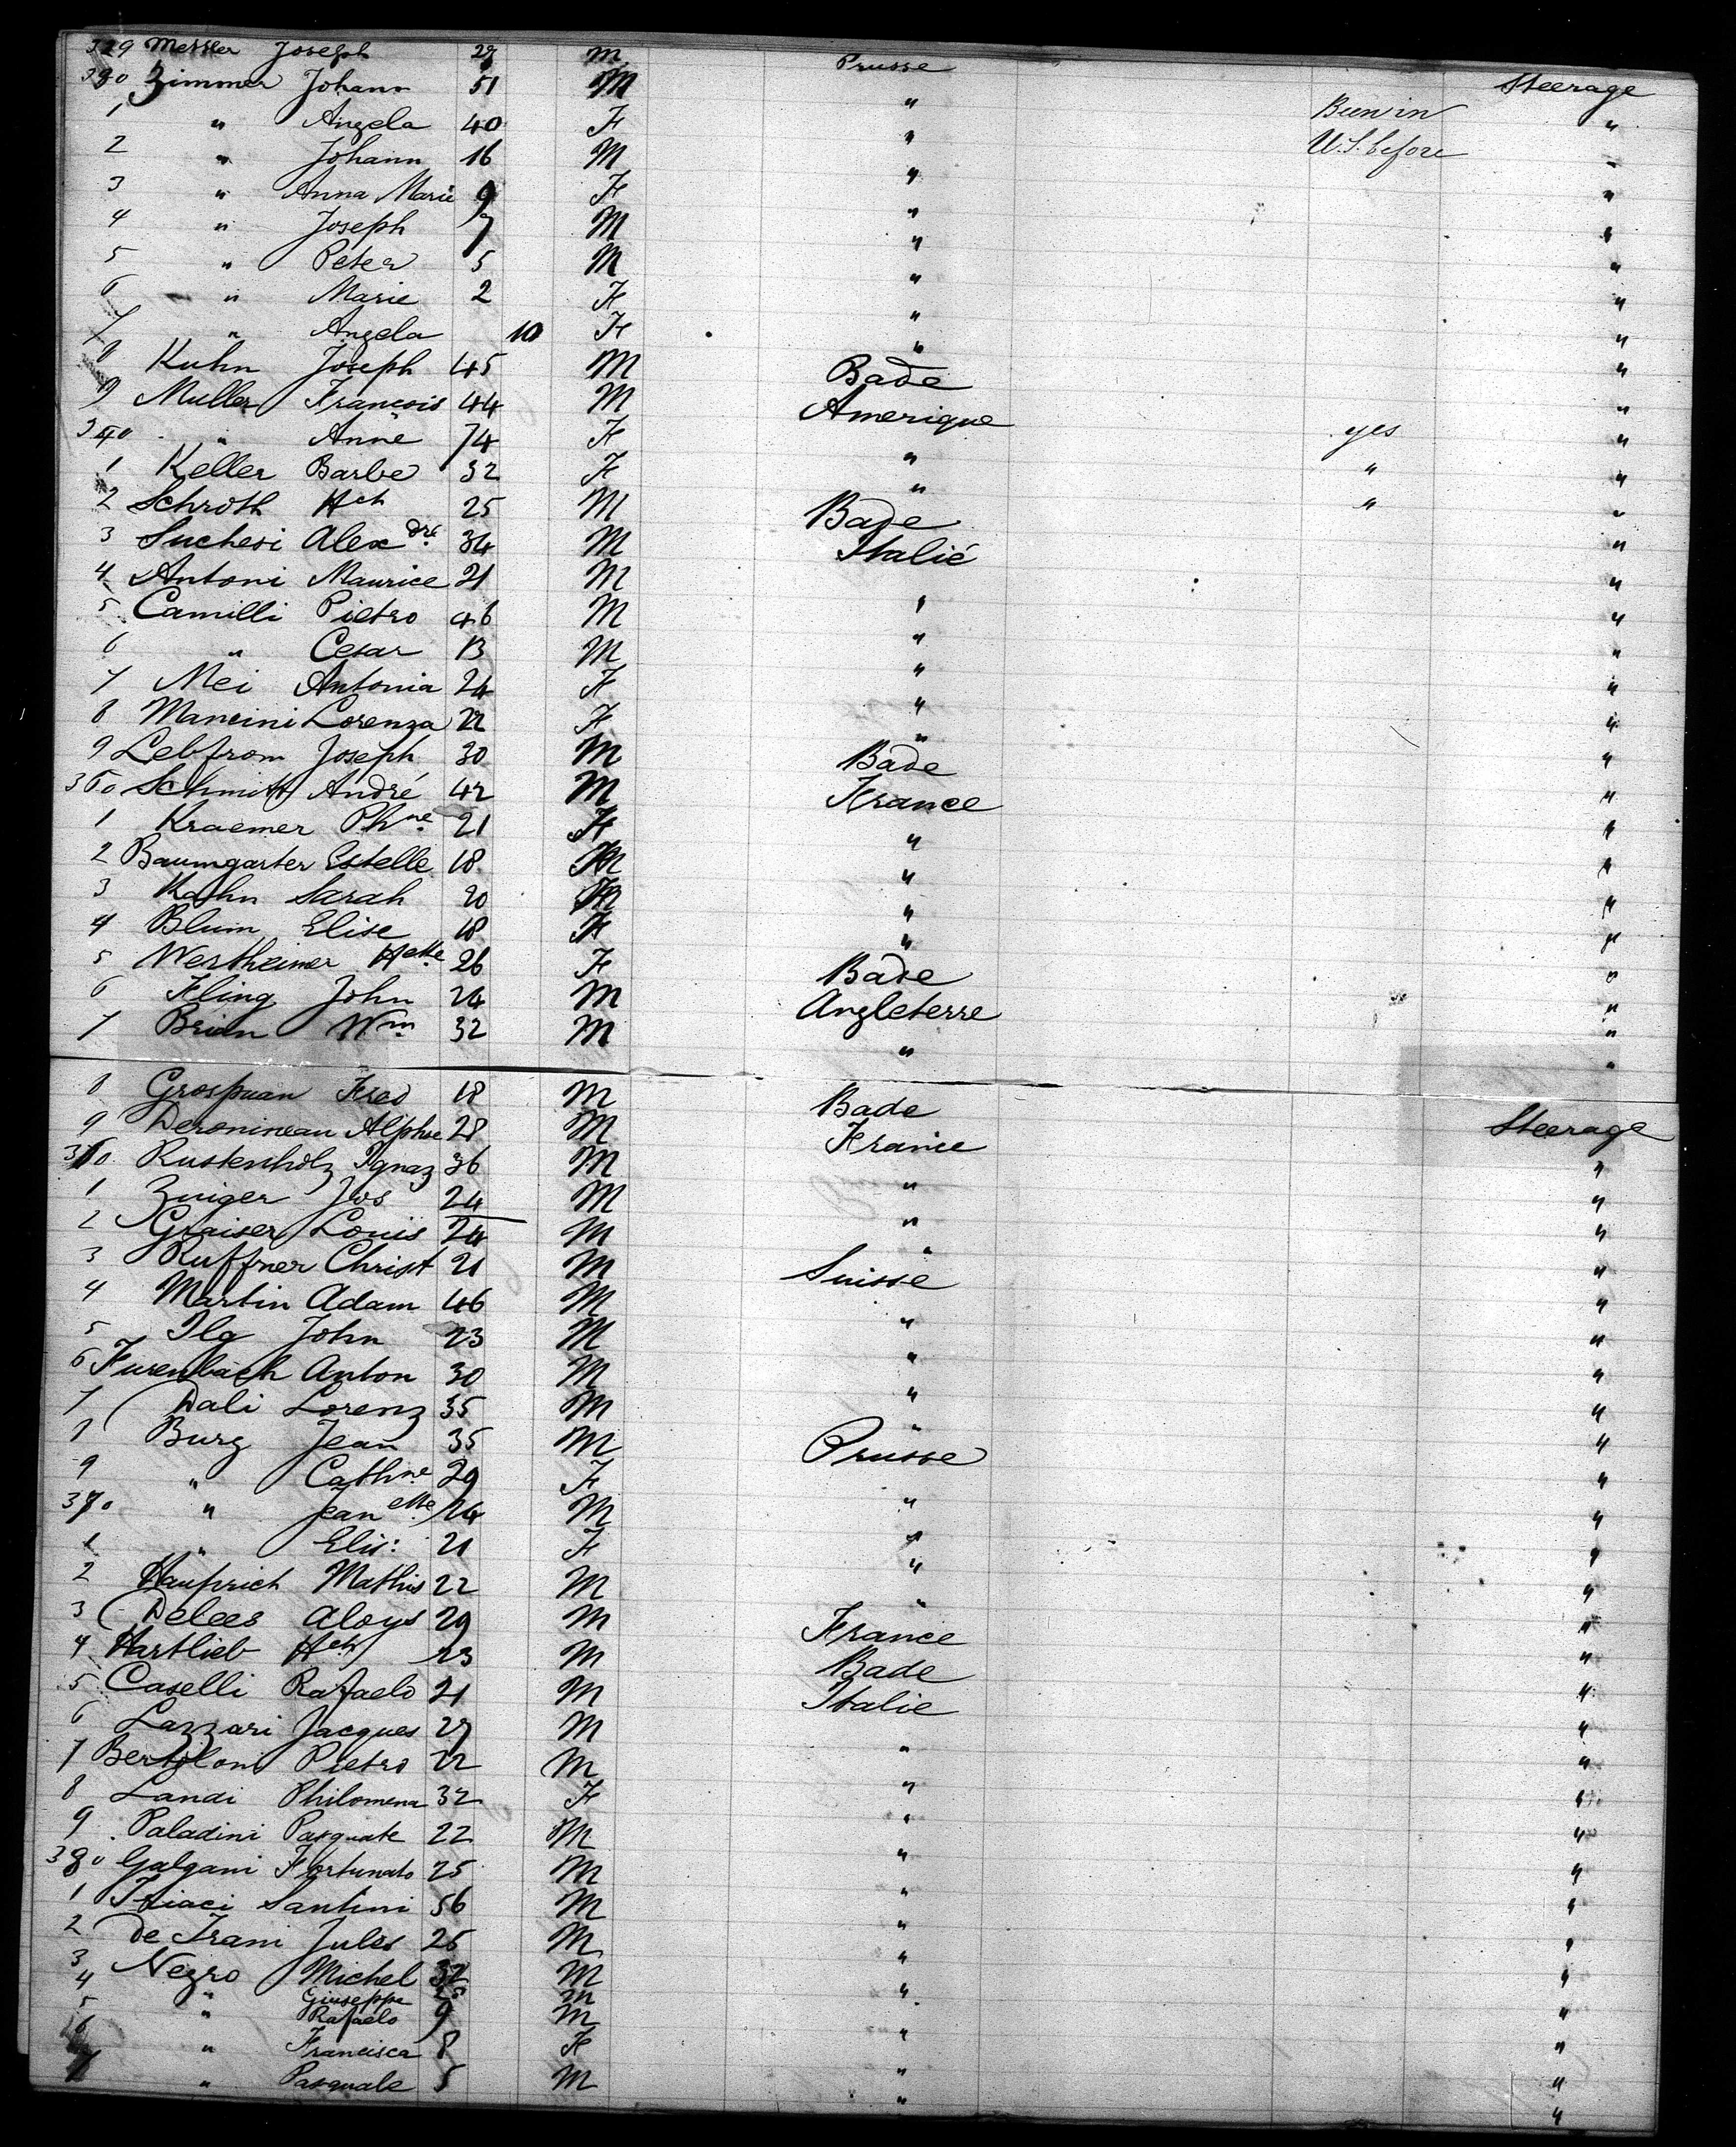 329 Messler Joseph 27 M Prusse Steerage
330 Zimmer Johann 51 M " Been in "
1 " Angela 40 F " U.S. before "
2 " Johann 16 M " "
3 " Anna Marie 9 F " "
4 " Joseph 7 M " "
5 " Peter 5 M " "
6 " Marie 2 F " "
7 " Angela 10 F " "
8 Kuhn Joseph 45 M Bade "
9 Muller Francois 44 M Amerique yes "
340 " Anne 74 F " " "
1 Keller Barbe 32 F " " "
2 Schroth Hch 25 M Bade "
3 Suchesi Alexdre 34 M Italie "
4 Antoni Maurice 21 M " "
5 Camilli Pietro 46 M " "
6 " Cesar 13 M " "
7 Mei Antonia 24 F " "
8 Mancini Lorenza 22 F " "
9 Lebfrom Joseph 30 M Bade "
350 Schmitt André 42 M France "
1 Kraemer Phne 21 F " "
2 Baumgarter Estelle 18 F " "
3 Kahn Sarah 20 F " "
4 Blum Elise 18 F " "
5 Wertheimer Hette 26 F Bade "
6 Fling John 24 M Angleterre "
7 Brian Wm 32 M " "
8 Grospuan Fred 18 M Bade Steerage
9 Deronineau Alphse 28 M France "
360 Rustenholz Ignaz 36 M " "
1 Zuiger Jos 24 M " "
2 Graiser Louis 24 M " "
3 Ruffner Christ 21 M Suisse "
4 Martin Adam 46 M " "
5 Ilg John 23 M " "
6 Furenbach Anton 30 M " "
7 Dali Lorenz 35 M " "
8 Burg Jean 35 M Prusse "
9 " Cathne 29 F " "
370 " Jeanette 24 M " "
1 " Elis: 21 F " "
2 Hauprich Mathis 22 M " "
3 Delees Aloys 29 M France "
4 Hartlieb Hch 23 M Bade "
5 Caselli Rafaelo 21 M Italie "
6 Lazzari Jacques 27 M " "
7 Bertoloni Pietro 22 M " "
8 Landi Philomena 32 F " "
9 Paladini Pasquale 22 M " "
380 Galgani Fortunato 25 M " "
1 Friaci Santini 56 M " "
2 De Trani Jules 25 M " "
3 Negro Michel 32 M " "
4 " Giuseppe M " "
5 " Rafaelo 9 M " "
6 " Francisca 8 F " "
7 " Pasquale 5 M " "